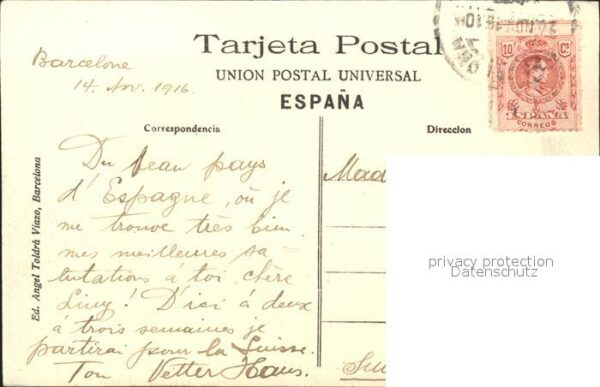 Tarjeta Postal
UNION POSTAL UNIVERSAL
ESPAÑA
Barcelone
14. Nov. 1916.
10 Cs
ESPAÑA
CORREOS
Correspondencia
Direccion
Ed. Angel Toldrá Viazo, Barcelona
Du beau pays
d'Espagne, où je
me trouve très bien,
mes meilleures sa-
lutations à toi, chère
Liny! D'ici à deux
à trois semaines je
partirai pour la Suisse.
Ton Vetter Hans.
Mad
privacy protection
Datenschutz